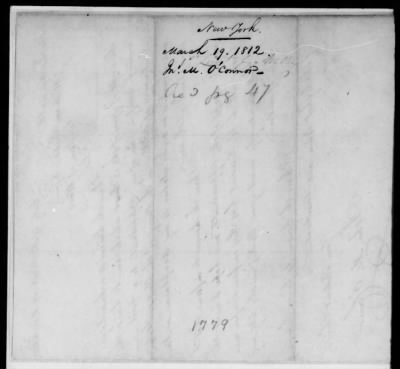 New York.
March 19. 1812.
Jnº. M. O'Connor
pg 47
1779